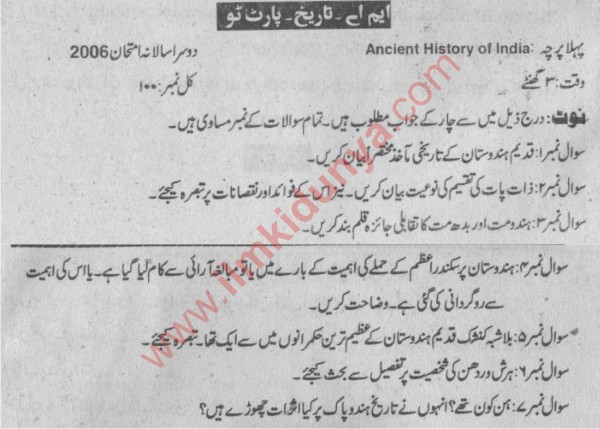 ایم اے۔ تاریخ۔ پارٹ ٹو
پہلا پرچہ: Ancient History of India دوسرا سالانہ امتحان 2006
وقت: ۳ گھنٹے کل نمبر: ۱۰۰
نوٹ: درج ذیل میں سے چار کے جواب مطلوب ہیں۔ تمام سوالات کے نمبر مساوی ہیں۔
سوال نمبر۱: قدیم ہندوستان کے تاریخی مآخذ مختصراً بیان کریں۔
سوال نمبر۲: ذات پات کی تقسیم کی نوعیت بیان کریں۔ نیز اس کے فوائد اور نقصانات پر تبصرہ کیجئے۔
سوال نمبر۳: ہندومت اور بدھ مت کا تقابلی جائزہ قلم بند کریں۔
سوال نمبر۴: ہندوستان پر سکندر اعظم کے حملے کی اہمیت کے بارے میں یا تو مبالغہ آرائی سے کام لیا گیا ہے۔ یا اس کی اہمیت
سے روگردانی کی گئی ہے۔ وضاحت کریں۔
سوال نمبر۵: بلاشبہ کنشک قدیم ہندوستان کے عظیم ترین حکمرانوں میں سے ایک تھا۔ تبصرہ کیجئے۔
سوال نمبر۶: ہرش وردھن کی شخصیت پر تفصیل سے بحث کیجئے۔
سوال نمبر۷: ہن کون تھے؟ انہوں نے تاریخ ہندو پاک پر کیا اثرات چھوڑے ہیں؟
www.ilmkidunya.com